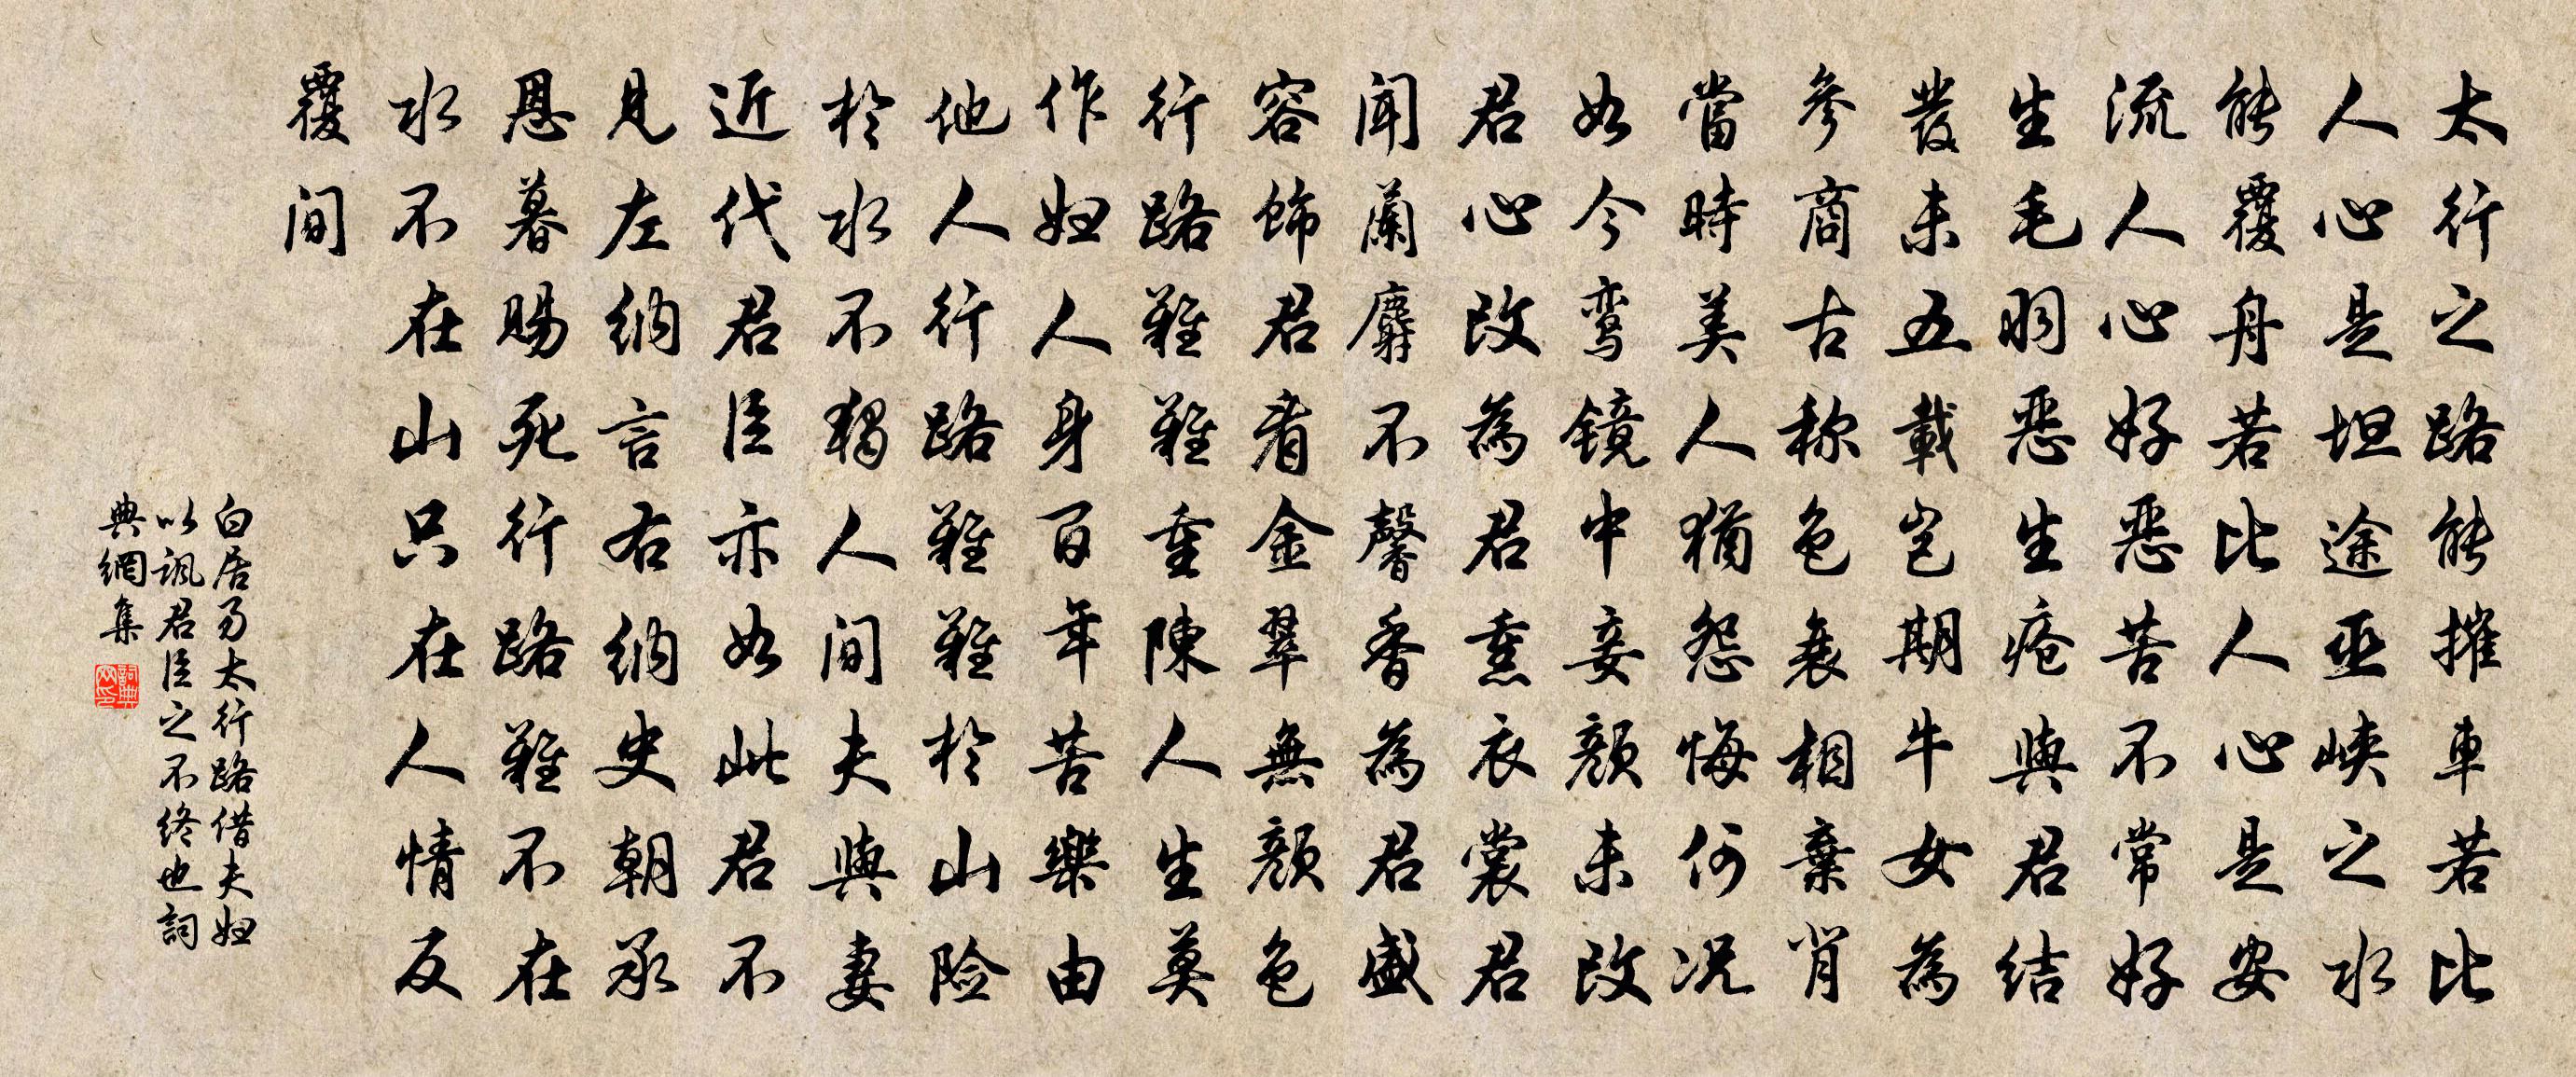 太行之路能摧車若比
人心是坦途巫峽之水
能覆舟若比人心是安
流人心好惡苦不常好
生毛羽惡生疮與君结
發未五載岂期牛女為
參商古称色衰相棄背
當時美人猶怨悔何况
如今鸾镜中妾顏未改
君心改為君熏衣裳君
闻蘭麝不馨香為君盛
容飾君看金翠無顏色
行路難難重陳人生莫
作妇人身百年苦樂由
他人行路難難於山险
於水不獨人间夫與妻
近代君臣亦如此君不
見左纳言右纳史朝承
恩暮賜死行路難不在
水不在山只在人情反
覆间
白居易太行路借夫妇
以諷君臣之不终也詞
典網集